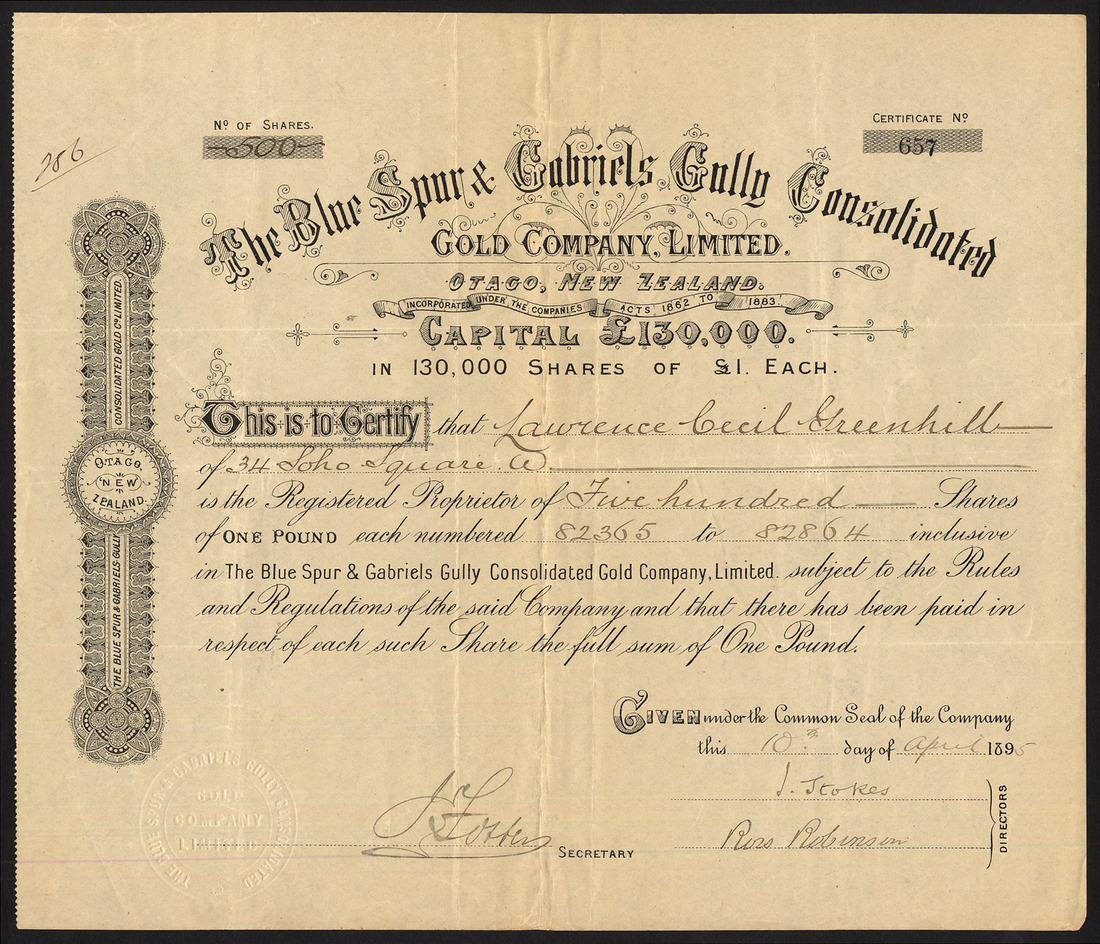 Nº OF SHARES.
500
CERTIFICATE Nº
657
286
The Blue Spur & Gabriels Gully Consolidated
GOLD COMPANY, LIMITED.
OTAGO, NEW ZEALAND.
INCORPORATED UNDER THE COMPANIES ACTS 1862 TO 1883.
CAPITAL £130,000.
IN 130,000 SHARES OF £1. EACH.
This is to Certify that Lawrence Cecil Greenhill
of 34 Soho Square. W.
is the Registered Proprietor of Five hundred Shares
of ONE POUND each numbered 82365 to 82864 inclusive
in The Blue Spur & Gabriels Gully Consolidated Gold Company, Limited. subject to the Rules
and Regulations of the said Company and that there has been paid in
respect of each such Share the full sum of One Pound.
GIVEN under the Common Seal of the Company
this 10th day of April 1895
J. Stokes
Ross Robinson
DIRECTORS
SECRETARY
THE BLUE SPUR & GABRIELS GULLY CONSOLIDATED GOLD Cº LIMITED.
OTAGO,
NEW
ZEALAND.
THE BLUE SPUR & GABRIEL'S GULLY CONSOLIDATED
GOLD
COMPANY
LIMITED